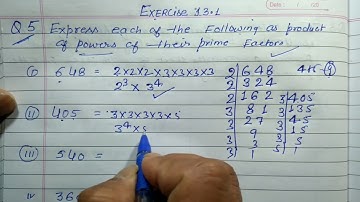 EXERCISE 13.1
Q5 Express each of the Following as product
of powers of their prime Factors
(i) 648 = 2×2×2×3×3×3×3
2³ × 3⁴
(ii) 405 = 3×3×3×3×5
3⁴×5
(iii) 540 =
iv 36
2 648
2 324
2 162
3 81
3 27
3 9
3 3
1
3 405
3 135
3 45
3 15
5 5
1